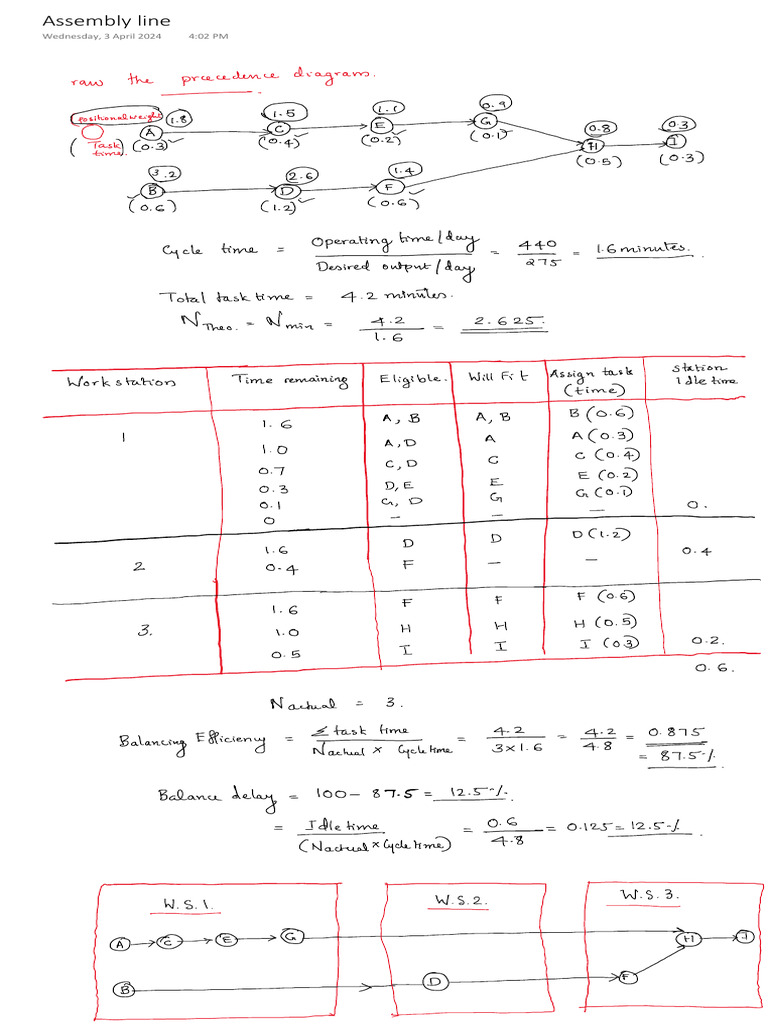 Assembly line
Wednesday, 3 April 2024 4:02 PM
raw the prcecedence diagram.
positional weight 1.8 1.5 1.1 0.9 0.8 0.3
A C E G H I
(Task time) (0.3) (0.4) (0.2) (0.1) (0.5) (0.3)
3.2 2.6 1.4
B D F
(0.6) (1.2) (0.6)
Cycle time = Operating time/day / Desired output/day = 440 / 275 = 1.6 minutes.
Total task time = 4.2 minutes.
N Theo. = N min = 4.2 / 1.6 = 2.625.
Work station Time remaining Eligible. Will Fit Assign task (time) Station Idle time
1 1.6 A, B A, B B (0.6)
1.0 A, D A A (0.3)
0.7 C, D C C (0.4)
0.3 D, E E E (0.2)
0.1 G, D G G (0.1)
0 – – – 0.
2 1.6 D D D (1.2)
0.4 F – – 0.4
3. 1.6 F F F (0.6)
1.0 H H H (0.5)
0.5 I I I (0.3) 0.2.
0.6.
N actual = 3.
Balancing Efficiency = Σ task time / Nactual × Cycle time = 4.2 / 3×1.6 = 4.2 / 4.8 = 0.875
= 87.5%.
Balance delay = 100 – 87.5 = 12.5%.
= Idle time / (Nactual × Cycle time) = 0.6 / 4.8 = 0.125 = 12.5%.
W.S.1. W.S.2. W.S.3.
A C E G H I
B D F